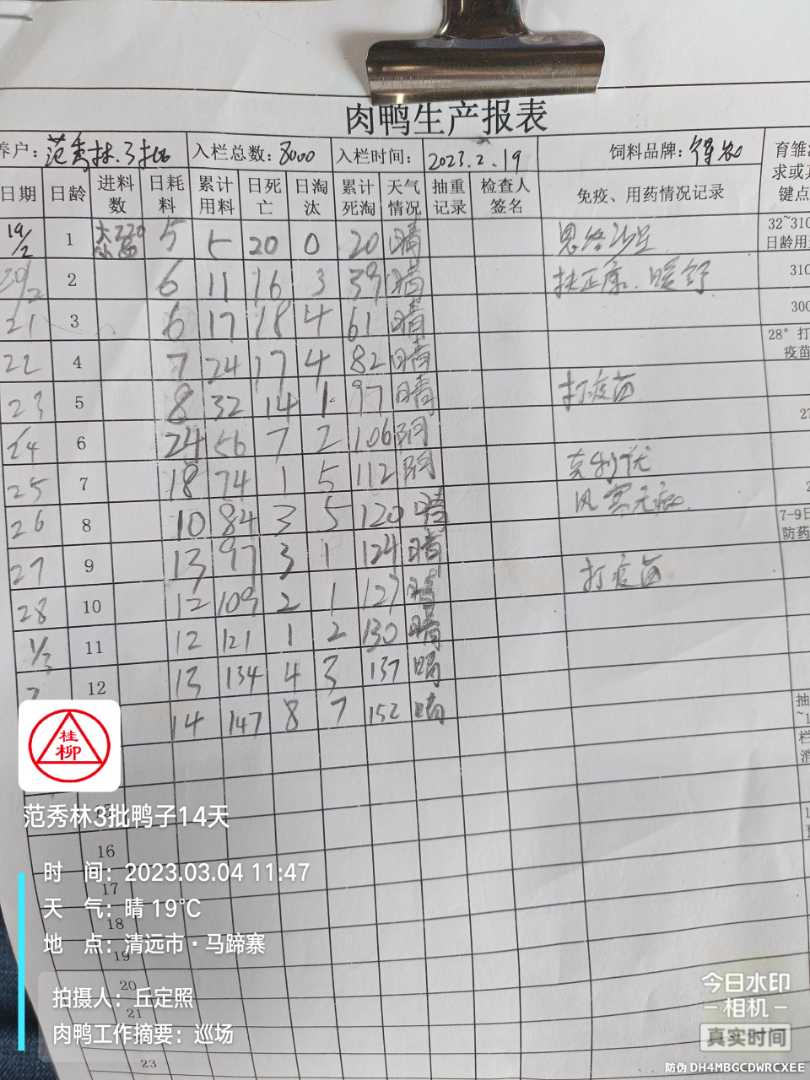 肉鸭生产报表
养户：范秀林.3批 入栏总数：8000 入栏时间：2023.2.19 饲料品牌：
日期 日龄 进料数 日耗料 累计用料 日死亡 日淘汰 累计死淘 天气情况 抽重记录 检查人签名 免疫、用药情况记录
19/2 1 5 5 20 0 20 晴 32~310
日龄用
20/2 2 6 11 16 3 39 晴 扶正康. 暖舒 310
21 3 6 17 18 4 61 晴 300
22 4 7 24 17 4 82 晴 28° 打
疫苗
23 5 8 32 14 1 97 晴 打疫苗
24 6 24 56 7 2 106 阴
25 7 18 74 1 5 112 阴
26 8 10 84 3 5 120 晴 7-9日
防药
27 9 13 97 3 1 124 晴 打疫苗
28 10 12 109 2 1 127 晴
1/3 11 12 121 1 2 130 晴
2 12 13 134 4 3 137 晴
14 147 8 7 152 晴
16
17
18
19
20
21
23
桂柳
范秀林3批鸭子14天
时 间：2023.03.04 11:47
天 气：晴 19℃
地 点：清远市·马蹄寨
拍摄人：丘定照
肉鸭工作摘要：巡场
今日水印
相机
真实时间
防伪 DH4MBGCDWRCXEE